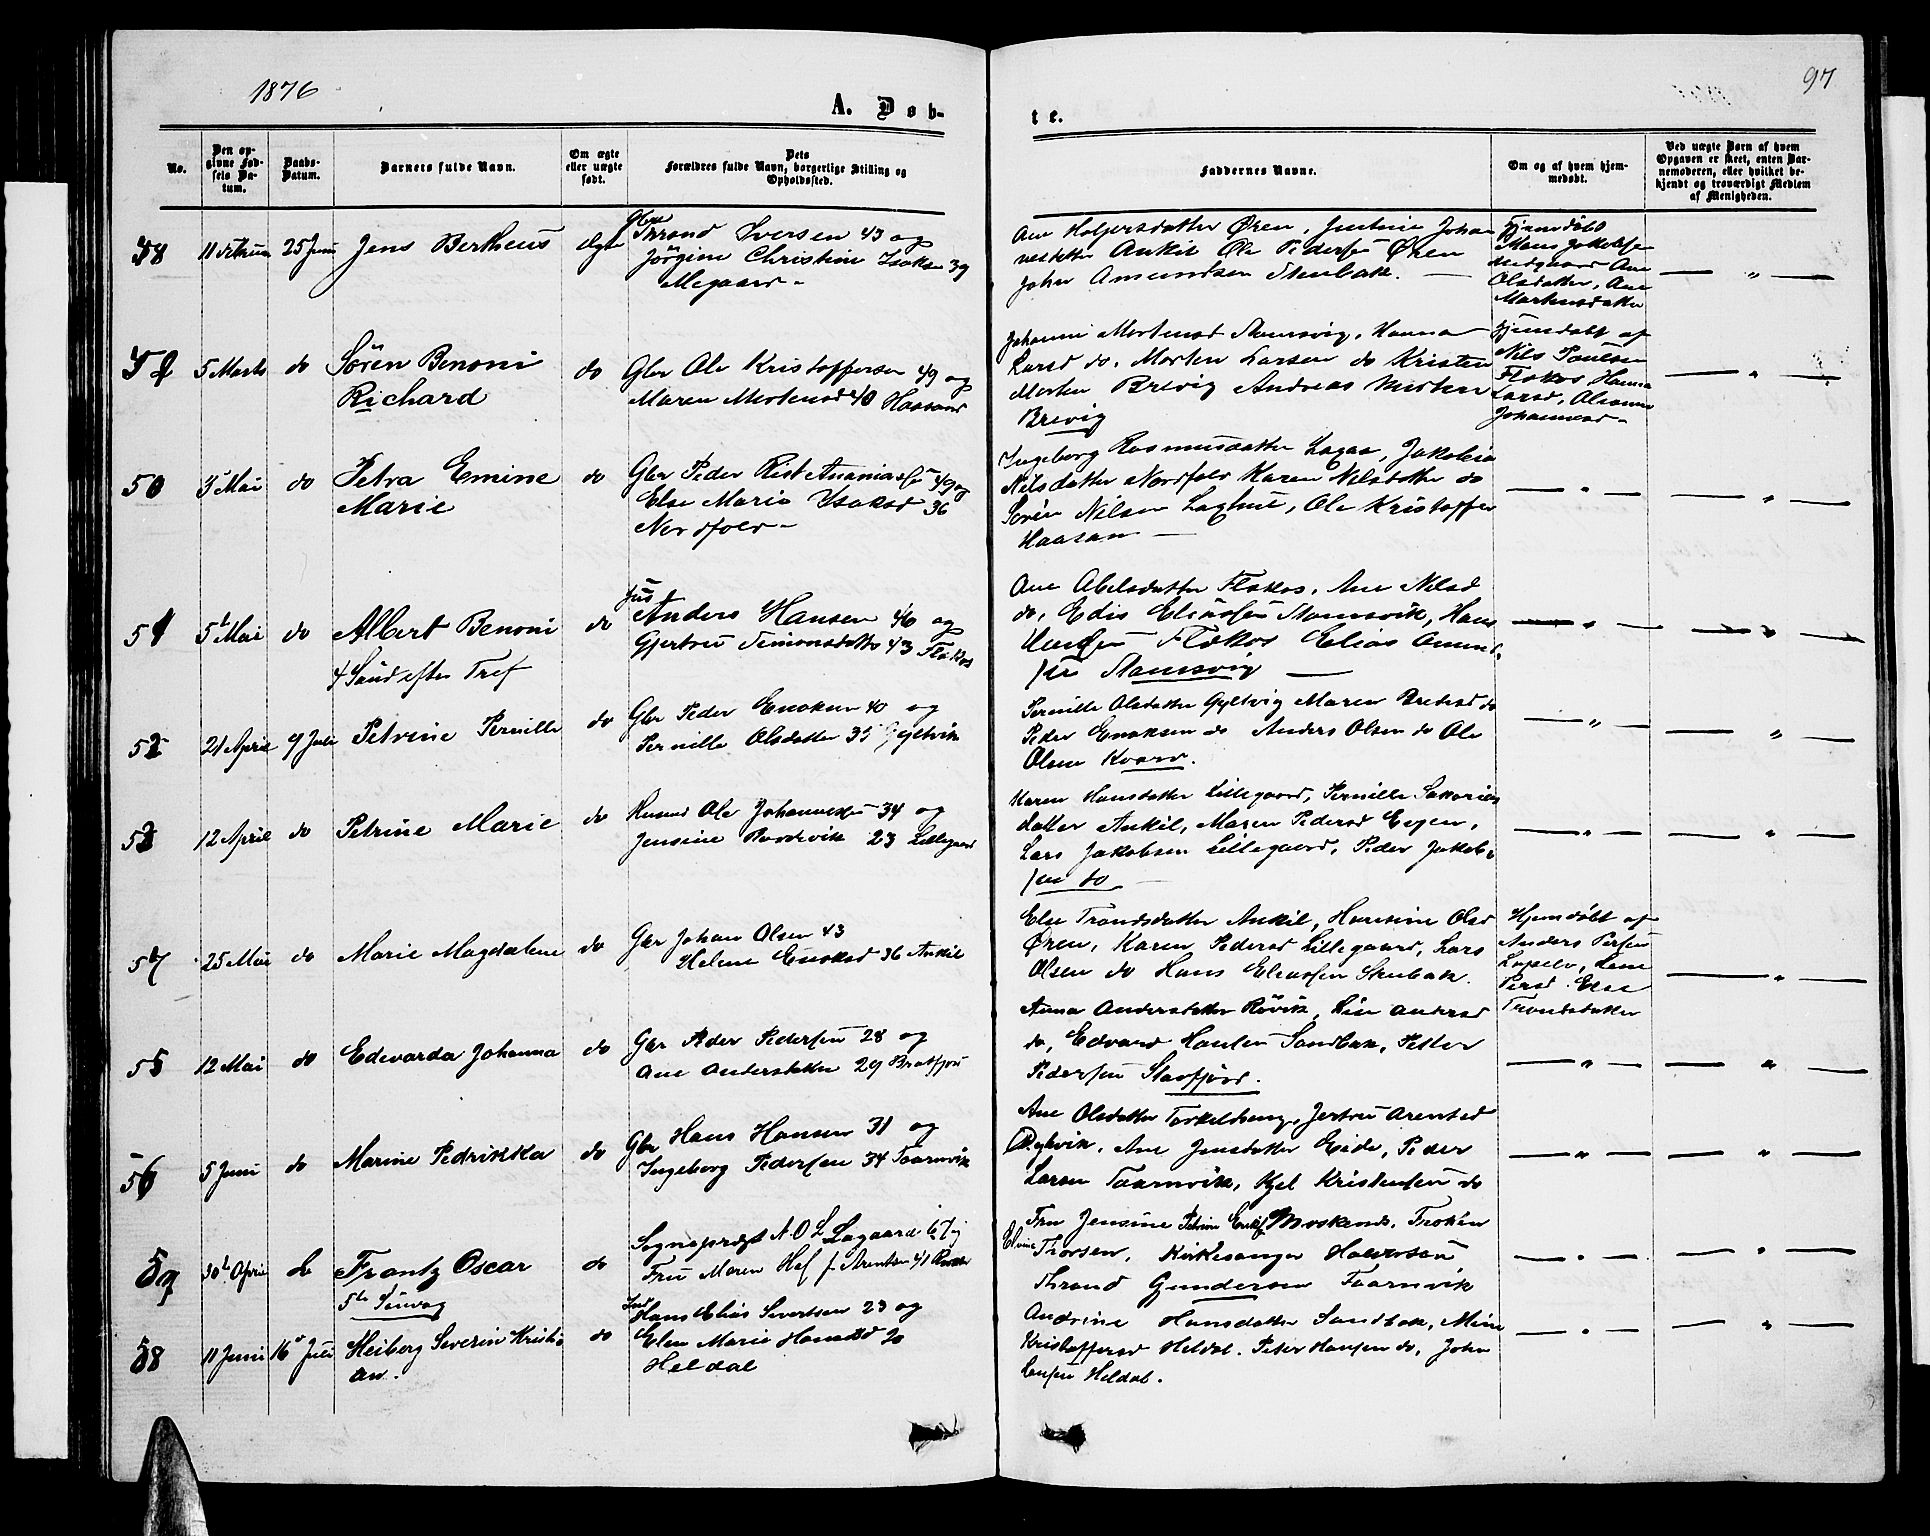 1876
97
A. Døb-
te.
No.
Den op-
givne Fød-
sels Da-
tum.
Daabs-
Datum.
Barnets fulde Navn.
Om ægte
eller uægte
født.
Dets
Forældres fulde Navn, borgerlige Stilling og
Opholdssted.
Faddernes Navne.
Om og af hvem hjem-
medøbt.
Ved uægte Børn af hvem
Opgaven er skeet, enten Bar-
nemoderen, eller hvilket be-
kjendt og troværdigt Medlem
af Menigheden.
48 25 Juni Jens Bertheus
Thrond Iversen 43 og
Jørgine Christine Isaksd 39
Megaard
Ane Holgersdatter Øren, Justine Johan
nesdatter Ankil Ole Pedersen Øren
John Amundsen Stenbak.
Hjemdøbt
Mons Jakobsen
Ane
Olsdatter, Ane
Martensdatter
5 Marts do Søren Benoni
Richard
do
Gbr Ole Kristoffersen 49 og
Maren Mortensd 40 Haasand
Johanne Mortensd Stamsvig, Hanna
Larsd do, Morten Larsen do Kristen
Morten Brevig Andreas Morten
Brevig
Hjemdøbt af
Nils Paulsen
Flakos Hanna
Larsd,
Johannesd
50 3 Mai do Petra Emine
Marie
do
Gbr Peder Rist Ananiassen 49 og
Else Maria Isaksd 36
Nordfold
Ingeborg Rasmusdatter Lagaa, Jakobia
Nilsdatter Nordfold Karen Nilsdatter do
Søren Nilsen Laghut, Ole Kristoffer
Haasan
51 5t Mai do Albert Benoni
4 Sønd efter Tref
do
Anders Hansen 46 og
Gjertru Simonsdatter 43 Flakos
Ane Abelsdatter Flakos, Ane Nilsd
do, Edis Eliassen Stamsvik, Hans
Flakos Elias Amund-
sen Stamsvig
52 21 April 9 Juli Petrine Pernille
do
Gbr Peder Enoksen 40 og
Pernille Olsdatter 35 Gyltvik
Pernille Olsdatter Gyltvig Maren Pedersd do
Peder Enoksen do Anders Olsen do Ole
Olsen Kvarv.
53 12 April do Petrine Marie
do
Husmd Ole Johannessen 34 og
Jensine Rondevik 23 Lillegaard
Karen Hansdatter Lillegaard, Pernille Sakarias
datter Ankil, Maren Pedersd Eegen,
Lars Jakobsen Lillegaard, Peder Jakob-
sen do
54 25 Mai do Marie Magdalene
do
Gbr Johan Olsen 43
Helene Enoksd 36 Ankil
Else Trondsdatter Ankil, Hansine Olsd
Øren, Karen Pedersd Lillegaard, Lars
Olsen do Hans Eliassen Stenbak.
Hjemdøbt af
Anders Persen
Lene
Persd. Else
Trondsdatter
55 12 Mai do Edevarda Johanna
do
Gbr Peder Pedersen 28 og
Ane Andersdatter 29 Bratfjord
Anna Andersdatter Røvik, Andersd
do, Edvard Hansen Sandbak, Petter
Pedersen Stavfjord.
56 5 Juni do Marine Pedrikka
do
Gbr Hans Hansen 31 og
Ingeborg Pedersen 34 Taarnvik
Ane Olsdatter Torkildseng, Jertru Arentsd
Røkvik, Ane Jensdatter Eide, Peder
Larsen Taarnvik, Kjel Kristensen do
30t April do Frantz Oscar
5te Juivag
do
Sogneprest A. O. L. Lagaard 67 og
Fru Maren f. Arentsen 41
Fru Jensine Petrine Moskenes, Frøken
Elvine Thorsen, Kirkesanger Halvorsen
Thrond Gundersen Taarnvik
58 11 Juni 16 Juli Heiberg Severin Kristi
an.
do
Ind
Hans Elias Sivertsen 23 og
Elen Marie Hansd 20
Heldal
Andrine Hansdatter Sandbak, Mine
Kristoffersd Heldal. Peter Hansen do, John
Heldal.